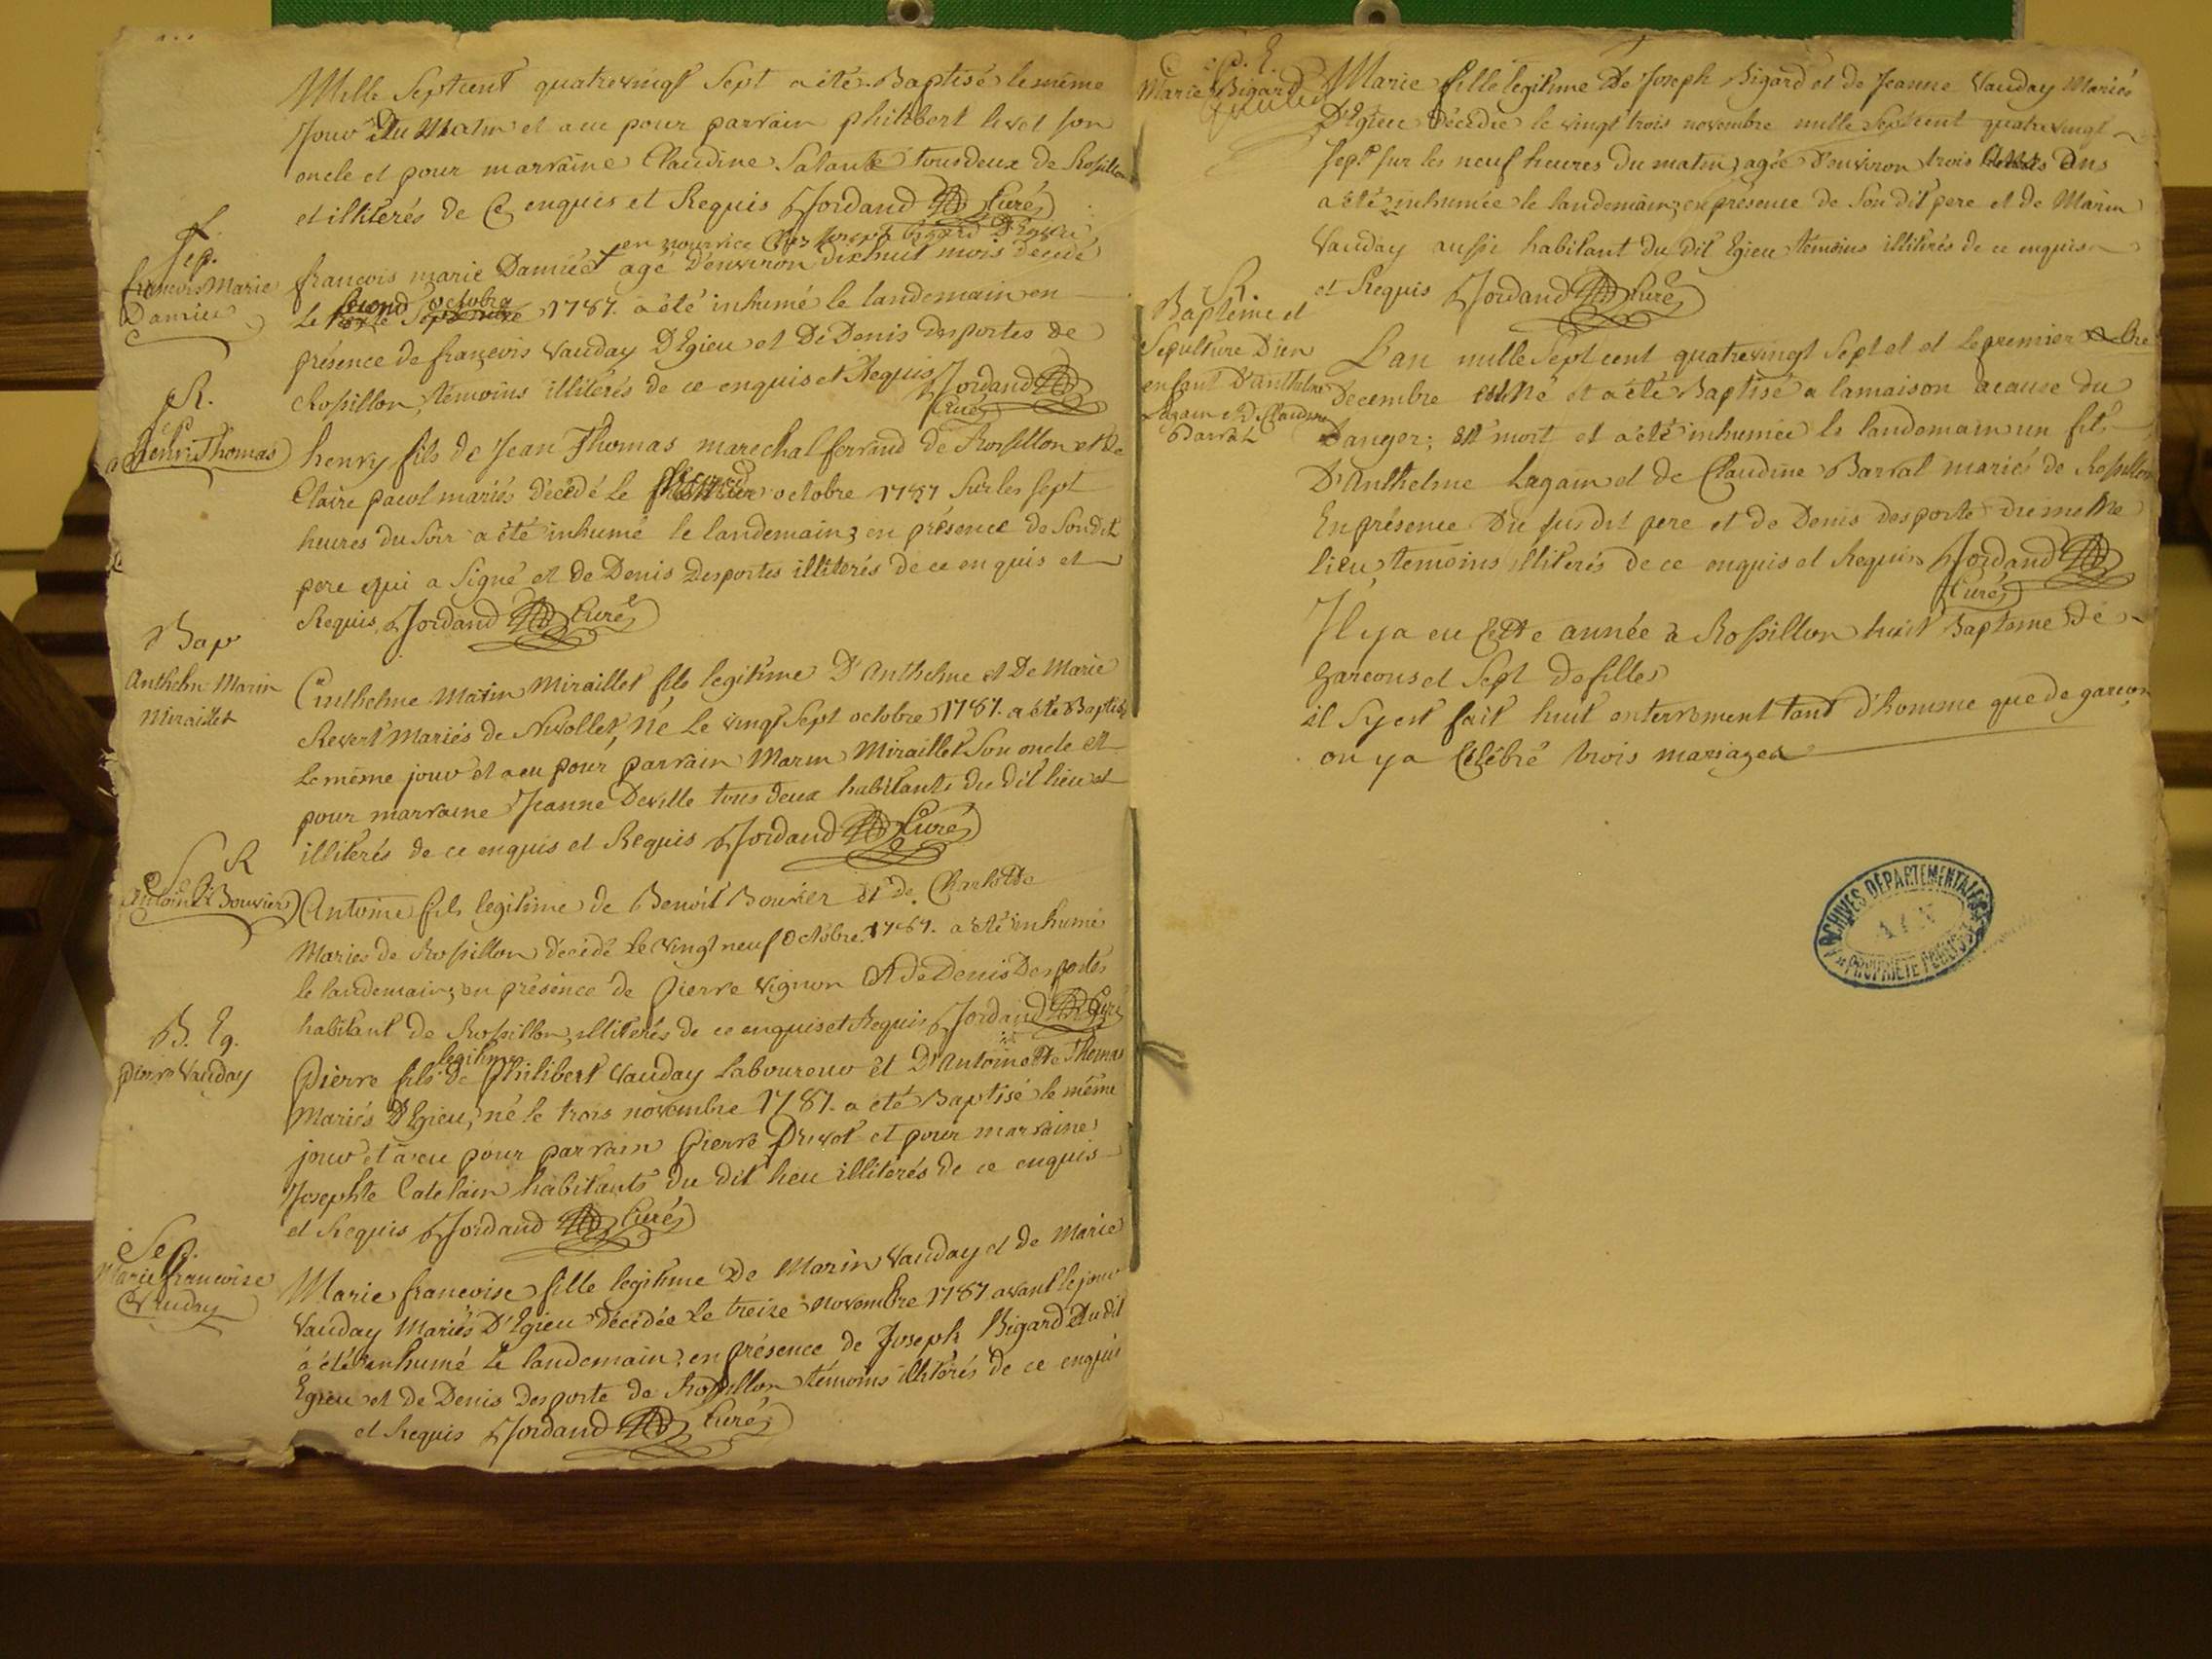 Mille Septcent quatrevingt Sept a été Baptisé le même
Jour Du Matin et a eu pour parrain philibert livet son
oncle et pour marraine Claudine Salante tous deux de Rossillon
et illiterés de Ce enquis et Requis Jordand Curé
Sep.
françois Marie
Damiée
en nourrice Chez Joseph bigard D'Egieu
françois marie Damiéé agé D'environ dixhuit mois décédé
second octobre
Le 1787. a été inhumé le landemain en
présence de françois Vauday D'Egieu et De Denis desportes de
Rossillon, témoins illiterés de ce enquis et Requis Jordand
Curé
R.
henri Thomas
henry fils de Jean Thomas marechal ferrand de Rossillon et de
Claire pacot mariés décédé le second octobre 1787 Sur les sept
heures du Soir a été inhumé le landemain; en présence de Son dit
pere qui a Signé et de Denis Desportes illiterés de ce enquis et
Requis Jordand Curé
Bap
Anthelm Marin
Miraillet
Anthelme Marin Miraillet fils legitime D'Anthelme et De Marie
Revert Mariés de Nivollet, né Le vingt Sept octobre 1787. a été Baptisé
Le même jour et a eu pour parrain Marin Miraillet Son oncle et
pour marraine Jeanne Deville tous deux habitants du dit lieu et
illiterés de ce enquis et Requis Jordand Curé
Se R
Antoine Bouvier
Antoine fils legitime de Benoit Bouvier et de Charlotte
Mariés de Rossillon décédé Le vingt neuf octobre 1787. a été inhumé
le landemain; en présence de Pierre Vignon et de Denis Desportes
habitant de Rossillon, illiterés de ce enquis et Requis Jordand Curé
B. Eg.
pierre Vauday
legitime
Pierre fils de Philibert Vauday Laboureur et D'Antoinette Thomas
Mariés D'Egieu, né le trois novembre 1787. a été Baptisé le même
jour et a eu pour parrain Pierre Drivet et pour marraine
Josephte Catelain habitants du dit lieu illiterés de ce enquis
et Requis Jordand Curé
Sep.
Marie françoise
Vauday
Marie françoise fille legitime De Marin Vauday et de Marie
Vauday Mariés D'Egieu Décédée Le treize novembre 1787 avant le jour
a été inhumé Le landemain; en présence de Joseph Bigard Du dit
Egieu et de Denis Desporte de Rossillon témoins illiterés de ce enquis
et Requis Jordand Curé
S. p. E.
Marie Bigard
Marie fille legitime De Joseph Bigard et de Jeanne Vauday Mariés
D'Egieu Décédée le vingt trois novembre mille Septcent quatrevingt
sept sur les neuf heures du matin; agée D'environ trois ans
a été inhumée le landemain; en présence de Son dit pere et de Marin
Vauday aussi habitant du dit Egieu témoins illiterés de ce enquis
et Requis Jordand Curé
R
Baptême et
Sepulture D'un
enfant D'anthelme
Lagain et de Claudine
Barral
L'an mille Sept cent quatrevingt Sept et et Le premier
Decembre est Né et a été Baptisé a la maison acause du
Danger; est mort et a été inhumée le landemain un fils
D'Anthelme Lagain et de Claudine Barral mariés de Rossillon
En présence Du susdit pere et de Denis desporte du même
lieu, témoins illiterés de ce enquis et Requis Jordand
Curé
Il y a eu Cette année a Rossillon huit Bapteme de
Garcons et Sept de filles
il S'y est fait huit enterrement tant d'homme que de garcon
on y a Célébré trois mariages
ARCHIVES DÉPARTEMENTALES
AIN
PROPRIÉTÉ PUBLIQUE